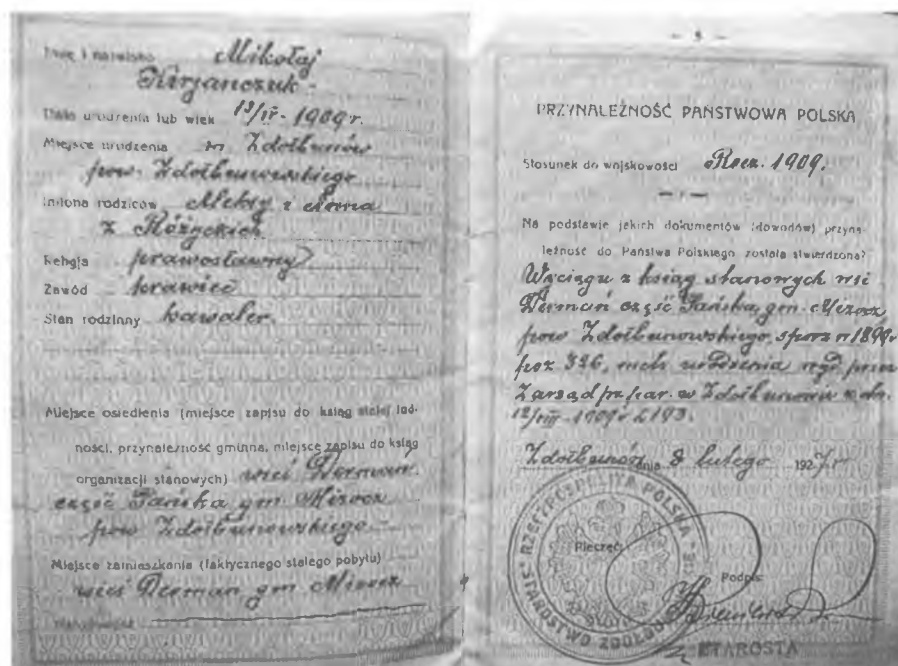 Imię i nazwisko Mikołaj
Kirjanczuk -
Data urodzenia lub wiek 12/IV - 1909 r.
Miejsce urodzenia m Zdołbunów
pow. Zdołbunowskiego
Imiona rodziców Aleksy z
z Różyckich
Religja prawosławny
Zawód krawiec
Stan rodzinny kawaler.
Miejsce osiedlenia (miejsce zapisu do ksiąg stałej lud-
ności, przynależność gminna, miejsce zapisu do ksiąg
organizacji stanowych) wieś Dermań
część Pańska gm Mizocz
pow Zdołbunowskiego -
Miejsce zamieszkania (faktycznego stałego pobytu)
wieś Dermań gm Mizocz
- 3 -
PRZYNALEŻNOŚĆ PAŃSTWOWA POLSKA
Stosunek do wojskowości Rocz. 1909.
Na podstawie jakich dokumentów (dowodów) przyna-
leżność do Państwa Polskiego została stwierdzona?
Wyciągu z ksiąg stanowych wsi
Dermań część Pańska, gm. Mizocz
pow Zdołbunowskiego, sporz w 1899 r
poz 336, urodzenia wyd. przez
Zarząd par. w Zdołbunowie z dn.
1909 r 193.
Zdołbunów dnia 8 lutego 1927 r
RZECZPOSPOLITA POLSKA
STAROSTWO
Pieczęć
Podpis
STAROSTA